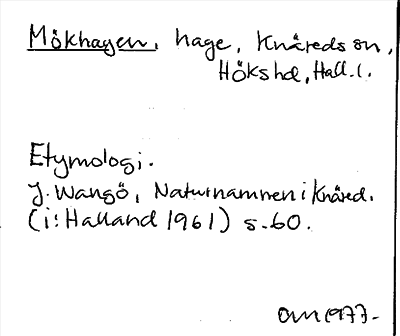 Mökhagen, hage, Knäreds sn,
Höks hd, Hall. l.
Etymologi.
J. Wangö, Naturnamnen i Knäred.
(i: Halland 1961) s. 60.
1977